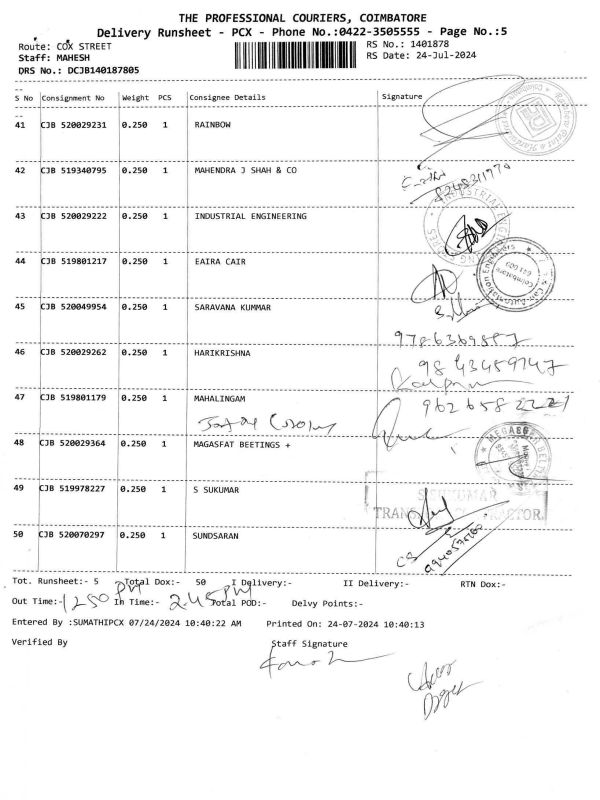 THE PROFESSIONAL COURIERS, COIMBATORE
Delivery Runsheet - PCX - Phone No.:0422-3505555 - Page No.:5
Route: COX STREET
RS No.: 1401878
Staff: MAHESH
RS Date: 24-Jul-2024
DRS No.: DCJB140187805
--
S No Consignment No Weight PCS Consignee Details Signature
--
41 CJB 520029231 0.250 1 RAINBOW
42 CJB 519340795 0.250 1 MAHENDRA J SHAH & CO
43 CJB 520029222 0.250 1 INDUSTRIAL ENGINEERING
44 CJB 519801217 0.250 1 EAIRA CAIR
45 CJB 520049954 0.250 1 SARAVANA KUMMAR
46 CJB 520029262 0.250 1 HARIKRISHNA
9843459747
47 CJB 519801179 0.250 1 MAHALINGAM
48 CJB 520029364 0.250 1 MAGASFAT BEETINGS +
49 CJB 519978227 0.250 1 S SUKUMAR
50 CJB 520070297 0.250 1 SUNDSARAN
Tot. Runsheet:- 5 Total Dox:- 50 I Delivery:- II Delivery:- RTN Dox:-
Out Time:- 1250 PM In Time:- 2.45 PM Total POD:- Delvy Points:-
Entered By :SUMATHIPCX 07/24/2024 10:40:22 AM Printed On: 24-07-2024 10:40:13
Verified By Staff Signature